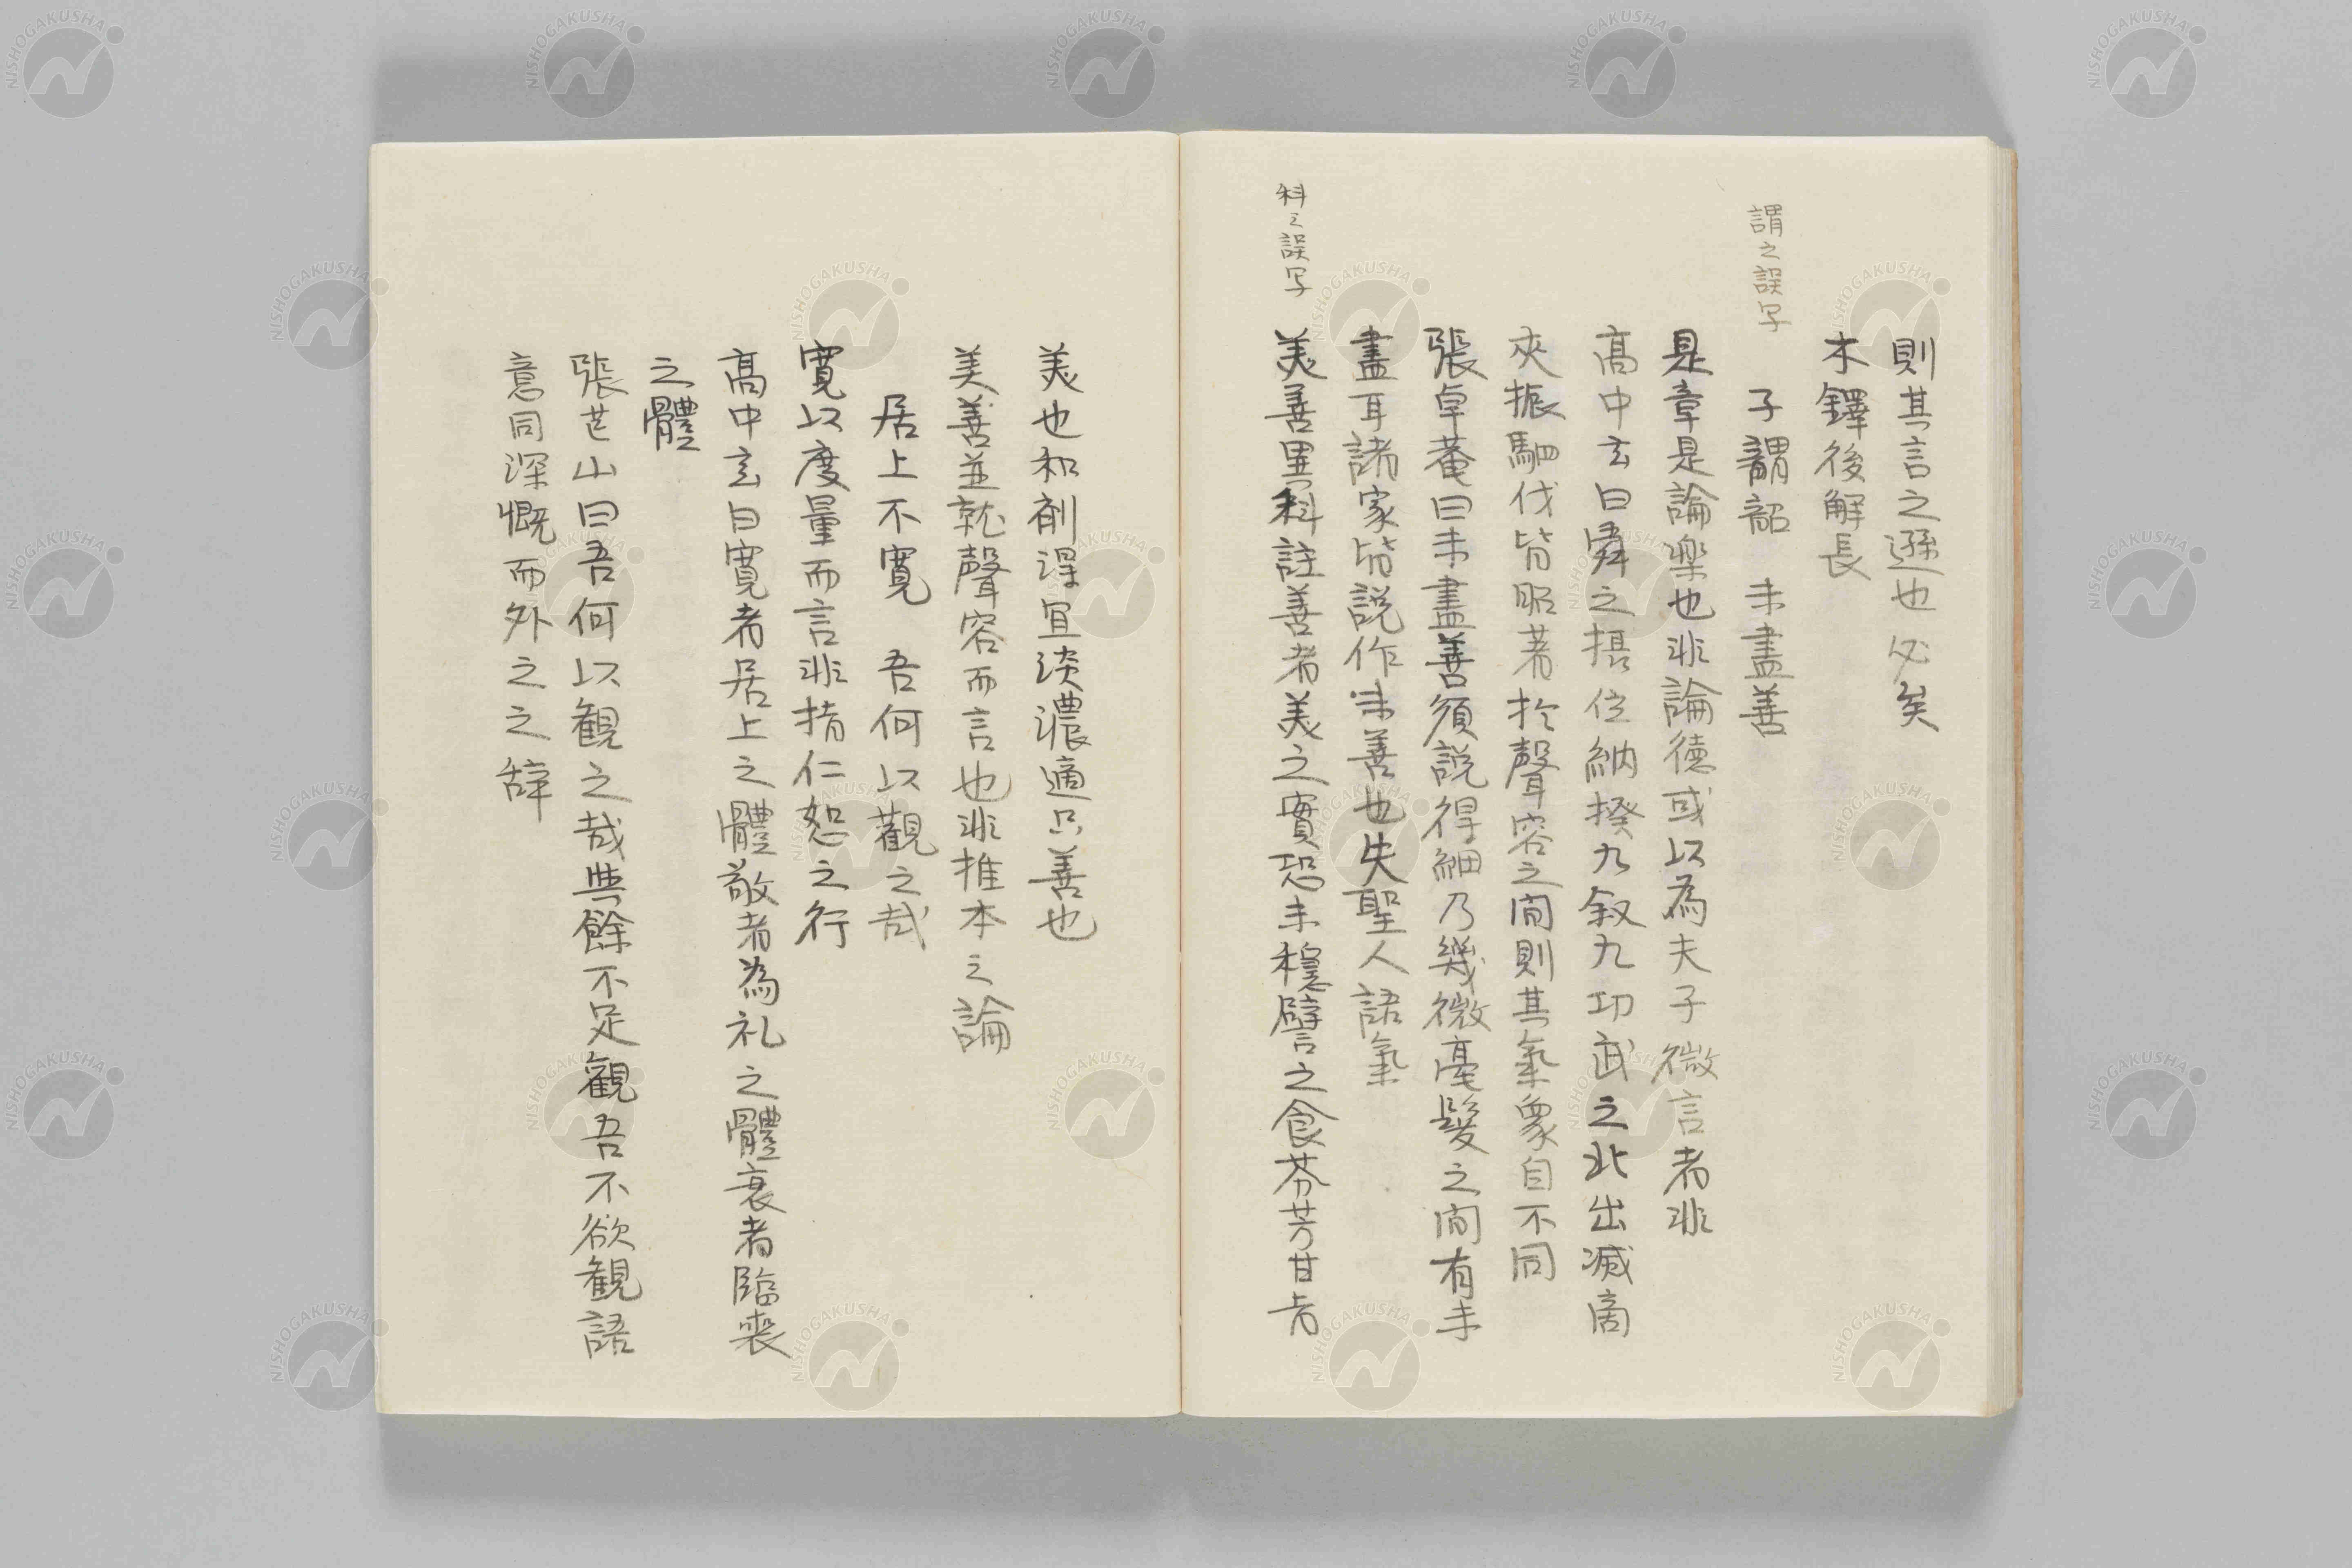 則其言之遜也必矣
木鐸後解長
謂之誤字
子謂韶　未盡善
是章是論樂也非論徳或以為夫子微言者非
髙中玄曰舜之摂位納揆九叙九功武之北出滅商
夾振駟伐皆昭著於聲容之間則其氣象自不同
張卓菴曰未盡善須説得細乃幾微毫髮之間有未
盡耳諸家皆説作未善也失聖人語氣
科之誤字
美善異科註善者美之實恐未穏譬之食芬芳甘旨
美也和劑得宜淡濃適口善也
美善並就聲容而言也非推本之論
居上不寛　吾何以觀之哉
寛以度量而言非指仁恕之行
髙中玄曰寛者居上之體敬者為礼之體哀者臨喪
之體
張芒山曰吾何以観之哉與餘不足観吾不欲観語
意同深慨而外之之辞
NISHOGAKUSHA